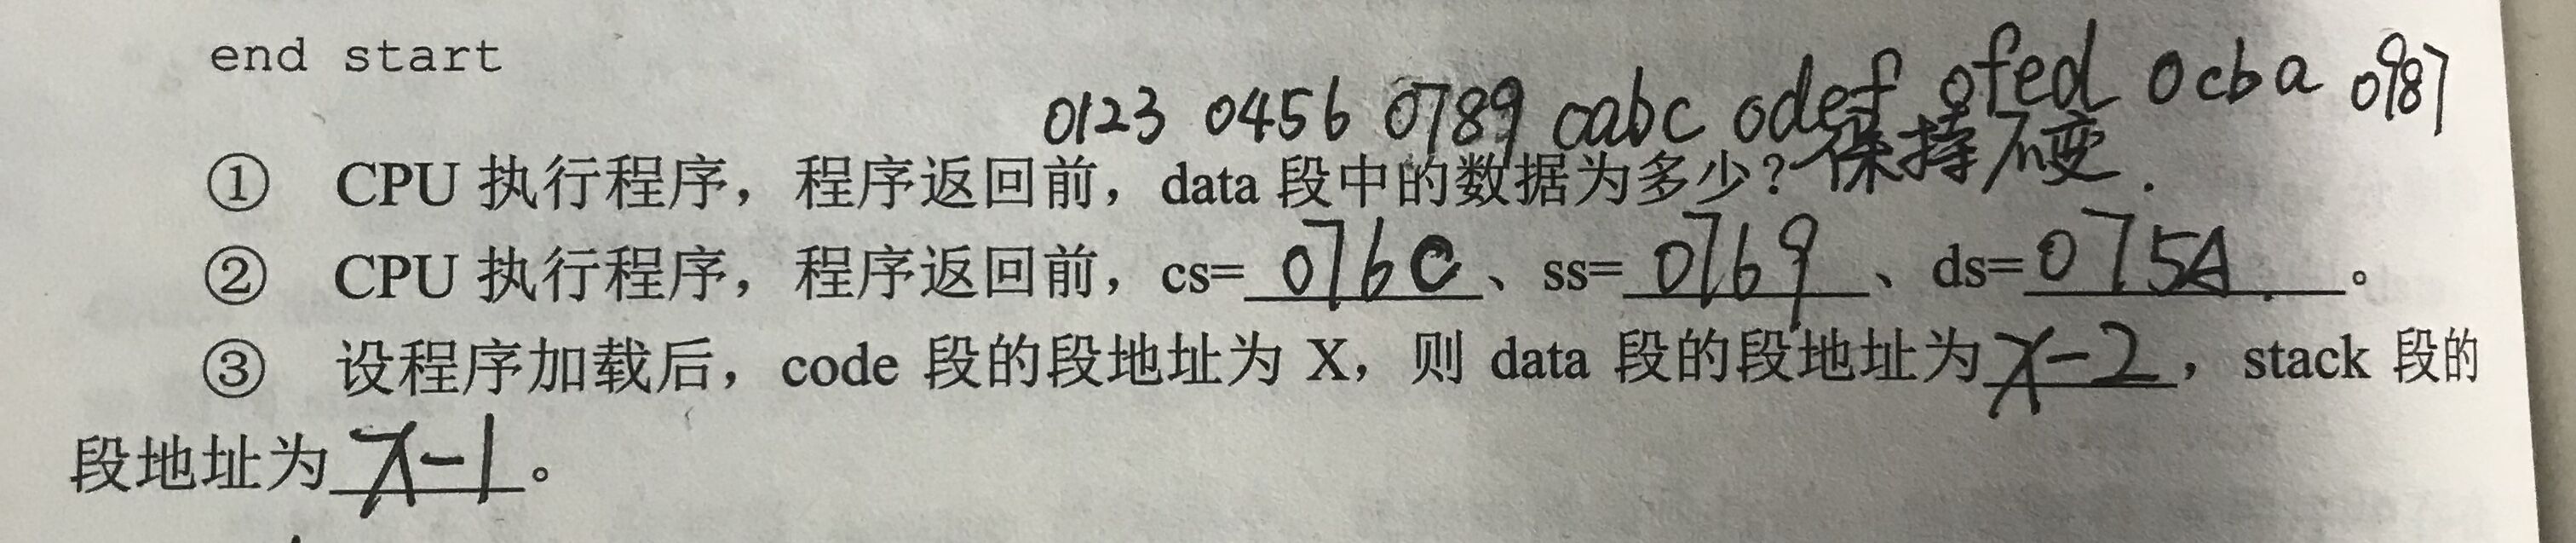 end start
0123 0456 0789 0abc 0def 0fed 0cba 0987
① CPU 执行程序，程序返回前，data 段中的数据为多少？保持不变.
② CPU 执行程序，程序返回前，cs=076C、ss=0769、ds=075A。
③ 设程序加载后，code 段的段地址为 X，则 data 段的段地址为X-2，stack 段的
段地址为X-1。